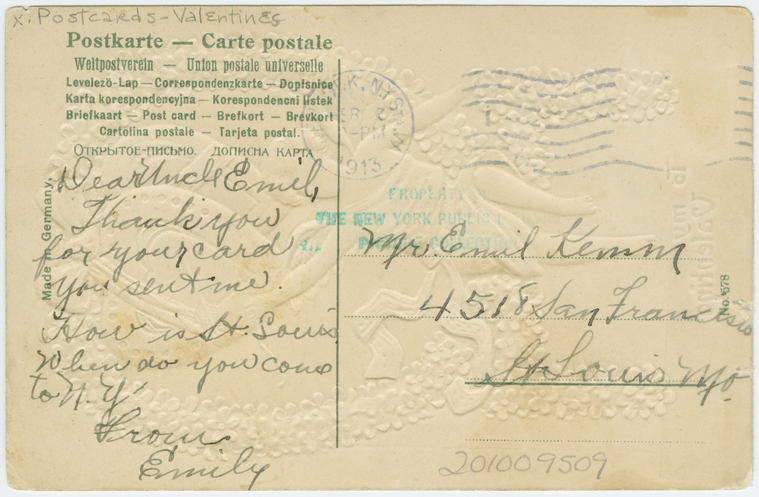 x: Postcards-Valentines
Postkarte — Carte postale
Weltpostverein — Union postale universelle
Levelezö-Lap — Correspondenzkarte — Dopisnice
Karta korespondencyjna — Korespondencni listek
Briefkaart — Post card — Brefkort — Brevkort
Cartolina postale — Tarjeta postal.
Открытое-письмо. Дописна карта
Made in Germany.
Dear Uncle Emil,
Thank you
for your card
you sent me.
How is St. Louis
When do you come
to N.Y.
From
Emily
N.Y.
PM
1913
PROPERTY
THE NEW YORK PUBLIC
Mr. Emil Kemm
4518 San Francisco
St Louis Mo.
No. 578
To my
Valentine
201009509